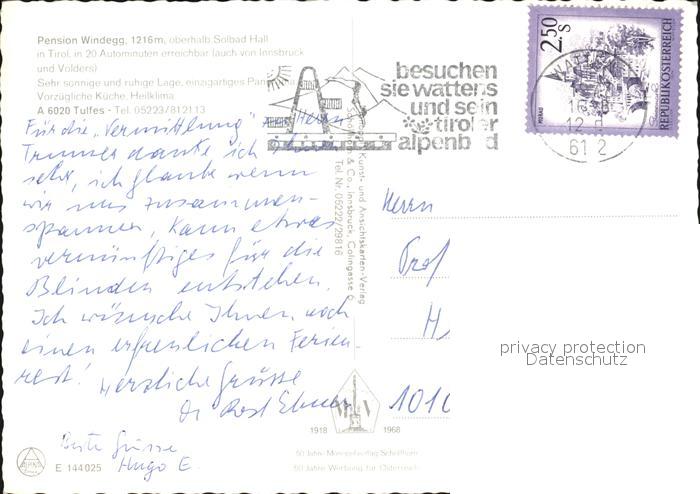 Pension Windegg, 1216m, oberhalb Solbad Hall
in Tirol, in 20 Autominuten erreichbar (auch von Innsbruck
und Volders)
Sehr sonnige und ruhige Lage, einzigartiges
Vorzügliche Küche, Heilklima
A 6020 Tulfes - Tel. 05223/812113
Für die „Vermittlung" Herrn
danke ich
sehr, ich glaube wenn
wir uns zusammen-
spannen, kann etwas
vernünftiges für die
Blinden entstehen.
Ich wünsche Ihnen noch
einen erfreulichen Ferien-
rest! Herzliche Grüsse
Dr
Beste Grüsse
Hugo E.
E 144025
besuchen
sie wattens
und sein
tiroler
alpenbad
2.50 S
REPUBLIK ÖSTERREICH
MURAU
WATTENS
12
6112
Kunst- und Ansichtskarten-Verlag
& Co., Innsbruck, Colingasse
Tel. Nr. 05222/29816
Herrn
Prof
H
1010
1918 1968
50 Jahre
50 Jahre Werbung für Österreich
privacy protection
Datenschutz